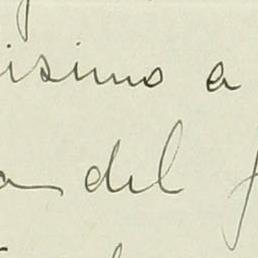 isimo a
a del